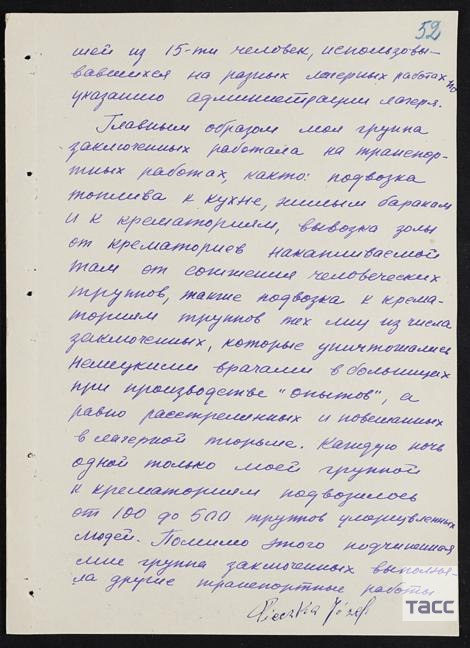 52
шей из 15-ти человек, использовы-
вавшихся на разных лагерных работах по
указанию администрации лагеря.
Главным образом моя группа
заключенных работала на транспор-
тных работах, както: подвозка
топлива к кухне, жилым баракам
и к крематориям, вывозка золы
от крематориев накапливаемой
там от сожжения человеческих
трупов, также подвозка к крема-
ториям трупов тех лиц из числа
заключенных, которые уничтожались
немецкими врачами в больницах
при производстве "опытов", а
равно расстрелянных и повешанных
в лагерной тюрьме. Каждую ночь
одной только моей группой
к крематориям подвозилось
от 100 до 500 трупов умерщвленных
людей. Помимо этого подчиненная
мне группа заключенных выполня-
ла другие транспортные работы
Pieczka Józef
ТАСС